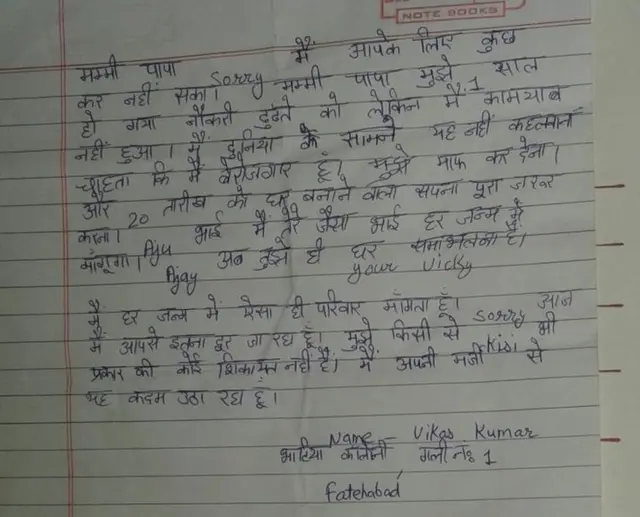 NOTE BOOKS
मम्मी पापा मैं आपके लिए कुछ
कर नहीं सका। sorry मम्मी पापा मुझे 1 साल
हो गया नौकरी ढुंढते को लेकिन मैं कामयाब
नहीं हुआ। मैं दुनिया के सामने यह नहीं कहलाना
चाहता कि मैं बेरोजगार हूँ। मुझे माफ कर देना।
और 20 तारीख को घर बनाने वाला सपना पूरा जरूर
करना। भाई मैं तेरे जैसा भाई हर जन्म में
माँगूगा। Aju अब तुझे ही घर समाभलना है।
Ajay your Vicky
मैं हर जन्म में ऐसा ही परिवार माँगता हूँ। आज
मैं आपसे इतना दूर जा रहा हूँ। sorry मुझे किसी से भी
प्रकार की कोई शिकायत नहीं है। Kisi मैं अपनी मर्जी से
यह कदम उठा रहा हूँ।
Name - Vikas Kumar
भाटिया कालोनी गली नं: 1
Fatehabad